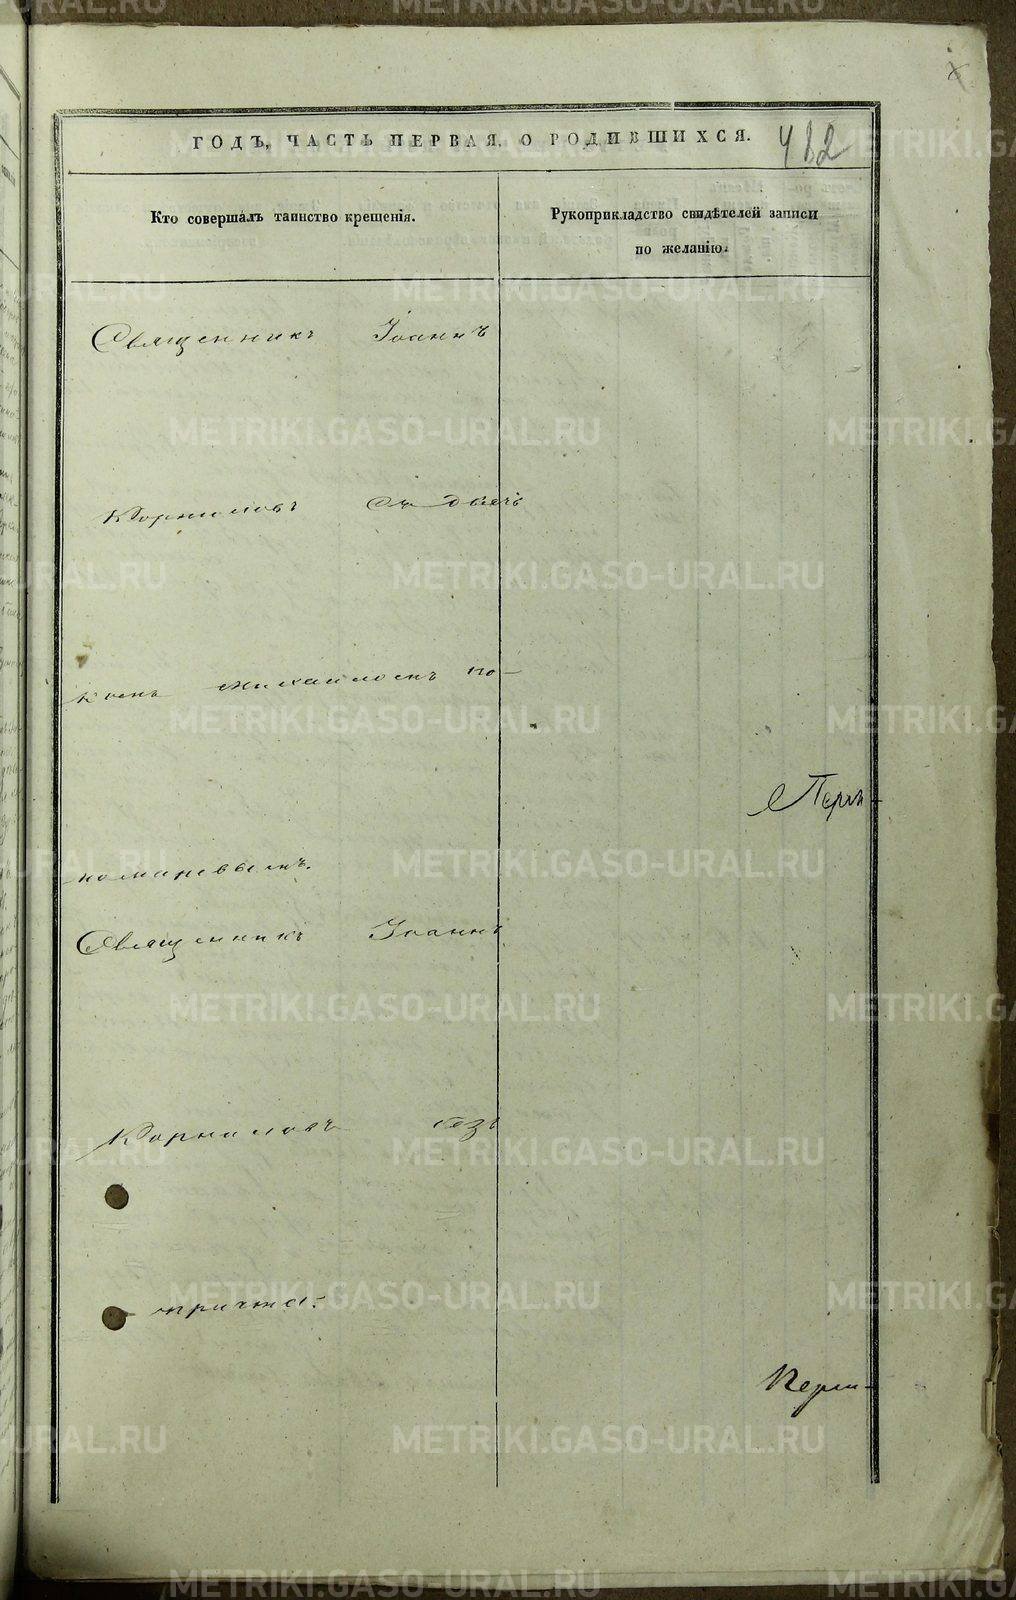 ГОДЪ, ЧАСТЬ ПЕРВАЯ, О РОДИВШИХСЯ. 482
Кто совершалъ таинство крещенія.
Рукоприкладство свидѣтелей записи
по желанію.
Священникъ Іоаннъ
Корниловъ съ дьяч
комъ Михаиломъ По-
номаревымъ.
Священникъ Іоаннъ
Корниловъ безъ
причта.
Перм-
Перм-
METRIKI.GASO-URAL.RU